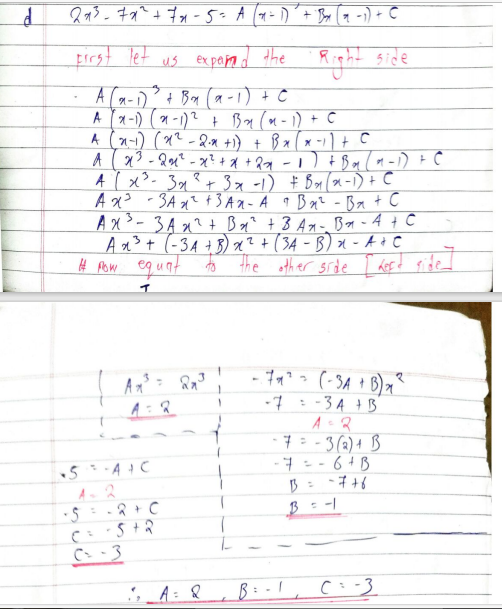 d 2x³ - 7x² + 7x - 5 = A(x-1)³ + Bx(x-1) + C
First let us expand the Right side
A(x-1)³ + Bx(x-1) + C
A(x-1)(x-1)² + Bx(x-1) + C
A(x-1)(x² - 2x + 1) + Bx(x-1) + C
A(x³ - 2x² - x² + x + 2x - 1) + Bx(x-1) + C
A(x³ - 3x² + 3x - 1) + Bx(x-1) + C
Ax³ - 3Ax² + 3Ax - A + Bx² - Bx + C
Ax³ - 3Ax² + Bx² + 3Ax - Bx - A + C
Ax³ + (-3A + B)x² + (3A - B)x - A + C
# now equat to the other side [Left side]
Ax³ = 2x³
A = 2
-7x² = (-3A + B)x²
-7 = -3A + B
A = 2
-7 = -3(2) + B
-7 = -6 + B
B = -7 + 6
B = -1
-5 = -A + C
A = 2
-5 = -2 + C
C = -5 + 2
C = -3
∴ A = 2, B = -1, C = -3